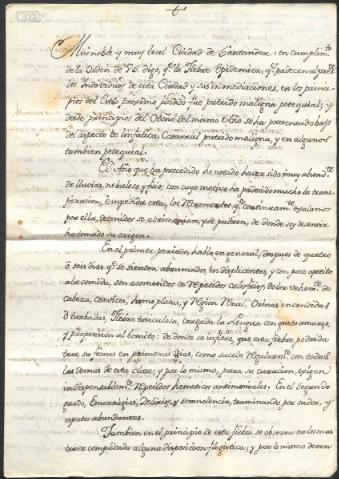 Mui noble y muy leal Ciudad de Santander: en cumplim.to
de la Orden de V.S. digo, q.e la fiebre Epidemica, q.e padecen al
los Individuos de esta Ciudad y sus inmediaciones, en los princi-
pios del Estio proximo pasado fue putrido maligna petequial; y
desde principios del Otoño del mismo Año se ha presentado bajo
del aspecto de Linfatica Catarral putrido maligna, y en algunos
tambien petequial.
El Año que ha precedido he notado haver sido muy abund.te
de lluvias, nebeloso y frio, con cuyo motivo ha padecido mucho la trans-
piracion, è impedida esta, los q.e continuam.te exalamos
por ella, detenidos se acrimonian, y se pudren, de donde soy de sentir
ha tomado su origen.
En el primer periodo, hablo en general, despues de quatro
ò seis dias q.e se sienten abrumados, indisplicentes, y con poco apetito
a la comida, son acometidos de repetidos calosfrios, dolor vehem.te de
cabeza, cervices, homo platas, y Region Renal, Orinas encendidas
ò turbadas, fiebre, cargada la lengua con gusto amargo,
y propension al bomito: de donde se infiere, que esta fiebre, podrida
trae su fomes en primeras vias, como sucede regularm.te con todas
las demas de esta clase; y por lo mismo, para su curacion, exigen
indispensablem.te repetidos hemeticos antimoniales. En el segundo
grado, Emorragias, Delirio, y somnolencia, terminando por sudor, y
esputos abundantes.
Tambien en el principio de esta fiebre se observa en los mas
traer complicada alguna disposicion flogistica; y por lo mismo deven